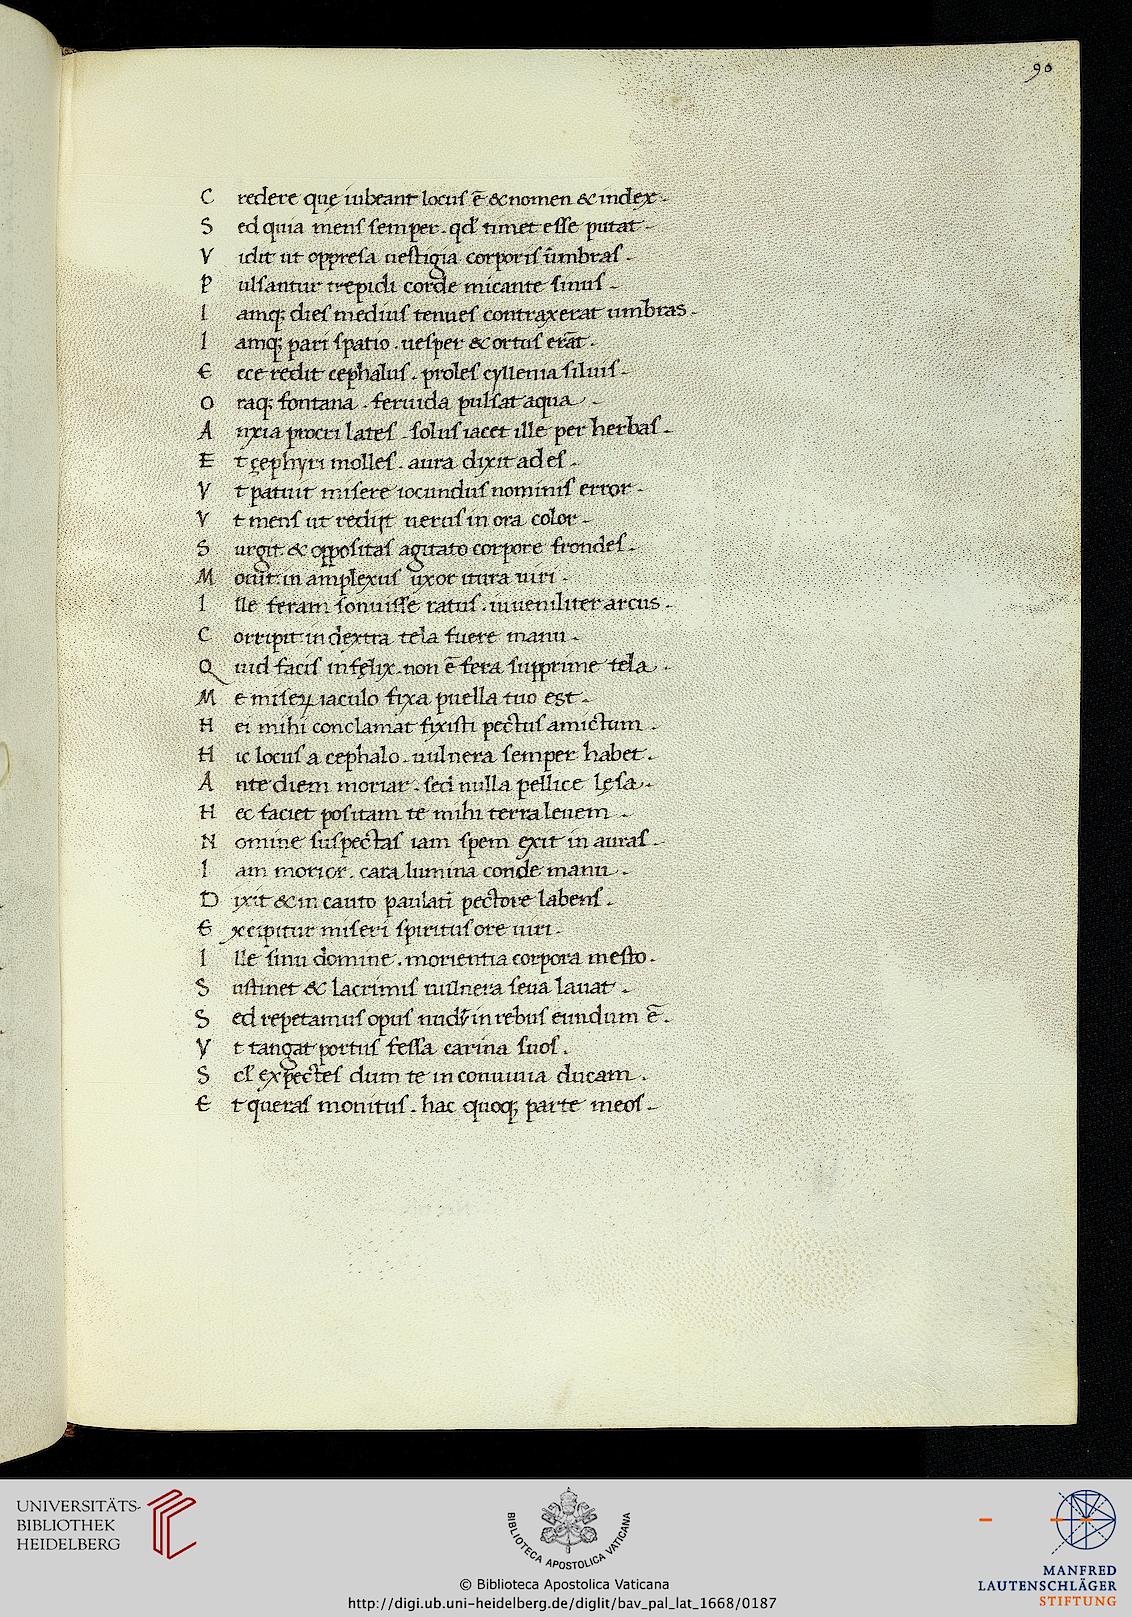 90
C redere quę iubeant locus ē & nomen & index.
S ed quia mens semper. qđ timet esse putat.
V idit ut oppresa uestigia corporis ūmbras.
P ulsantur trepidi corde micante sinus.
I amq; dies medius tenues contraxerat umbras.
I amq; pari spatio. uesper & ortus erāt.
E cce redit cephalus. proles cyllenia siluis.
O raq; fontana. feruida pulsat aqua.
A nxia procri lates. solus iacet ille per herbas.
E t çephyri molles. aura dixit ades.
V t patuit misere iocundus nominis error.
V t mens ut redijt uerus in ora color.
S urgit & oppositas agitato corpore frondes.
M ouit. in amplexus uxor itura uiri.
I lle feram sonuisse ratus. iuueniliter arcus.
C orripit in dextra tela fuere manu.
Q uid facis infęlix. non ē fera supprime tela.
M e miseꝝ iaculo fixa puella tuo est.
H ei mihi conclamat fixisti pectus amictum.
H ic locus a cephalo. uulnera semper habet.
A nte diem moriar. sed nulla pellice lęsa.
H ec faciet positam te mihi terra leuem.
N omine suspectas iam spem exit in auras.
I am morior. cara lumina conde manu.
D ixit & in cauto paulatī pectore labens.
E xcipitur miseri spiritus ore uiri.
I lle sinu domine. morientia corpora mesto.
S ustinet & lacrimis uulnera seua lauat.
S ed repetamus opus in rebus eundum ē.
V t tangat portus fessa carina suos.
S cł expectes dum te in conuiuia ducam.
E t queras monitus. hac quoq; parte meos.
UNIVERSITÄTS-
BIBLIOTHEK
HEIDELBERG
BIBLIOTECA APOSTOLICA VATICANA
MANFRED
LAUTENSCHLÄGER
STIFTUNG
© Biblioteca Apostolica Vaticana
http://digi.ub.uni-heidelberg.de/diglit/bav_pal_lat_1668/0187